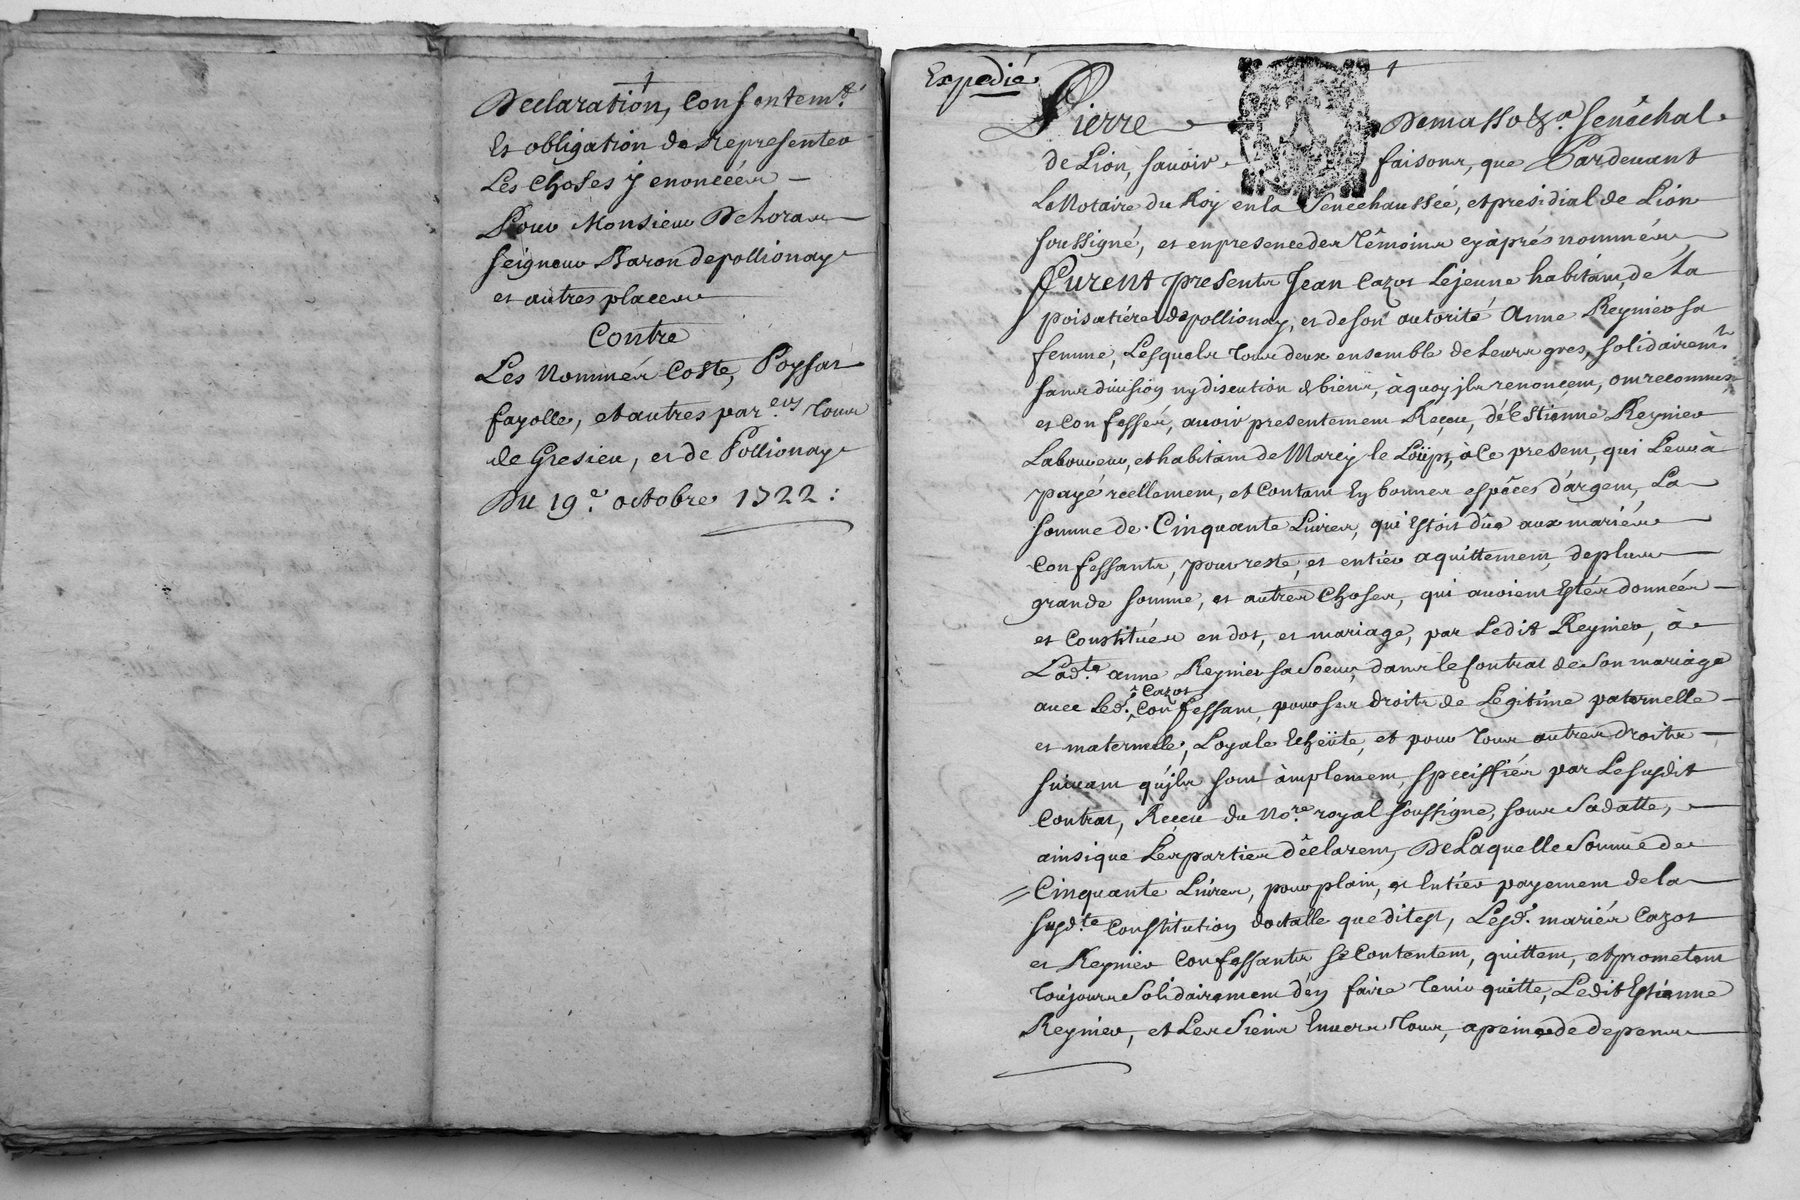 Declaration, Consentem.t
Et obligation de Representer
Les choses y enoncéés
Pour Monsieur Deloras
seigneur Baron depollionay
et autres places
Contre
Les Nommés Coste, Poysat
fayolle, et autres par.ers tous
de Gresieu, et de Pollionay
Du 19.e octobre 1722 :
Expedié
Pierre Demasso &a senêchal
de Lion, sauoir faisons, que Pardeuant
Le Notaire du Roy en la Senechaussée, et presidial de Lion
soussigné, et en presence des têmoins cy àprés nommés,
Furent presents Jean Cazot Lejeune habitant, de La
poisatiére depollionay, et de son autorité Anne Reynier sa
femme, Lesquels tous deux ensemble de leurs gres, solidairem.t
sans diuision ny discution de biens, à quoy jls renoncent, ont reconnus
et Confessés, auoir presentement Reçeu, d'Estienne Reynier
Laboureur, et habitant de Marcy le Loüp, à Ce present, qui Leur à
payé réellement, et Contant En bonnes espêces d'argent, La
somme de Cinquante Liures, qui Estoit dûe aux mariés
Confessants, pour reste, et entier aquittement, de plus
grande somme, et autres choses, qui auoient Estés donnéés
et Constituéés en dot, et mariage, par Ledit Reynier, à
Lad.te anne Reynier sa soeur, dans le Contrat de son mariage
auec Led.t Cazot Confessant, pour ses droits de Legitime paternelle
et maternelle, Loyale Echeüte, et pour tous autres droits
suiuant qu'jls sont àmplement, speciffiés par Le susdit
Contrat, Reçeu du No.re royal soussigné, sous sa datte,
ainsi que Les parties dêclarent, De Laquelle Somme de
Cinquante Liures, pour plain, et Entier payement de la
susd.te Constitution dotalle que dit est, Lesd.t mariés Cazot
et Reynier Confessants se Contentent, quittent, et prometent
toujours Solidairement d'en faire tenir quitte, Ledit Estienne
Reynier, et Les siens Enuers tous, a peine de depens